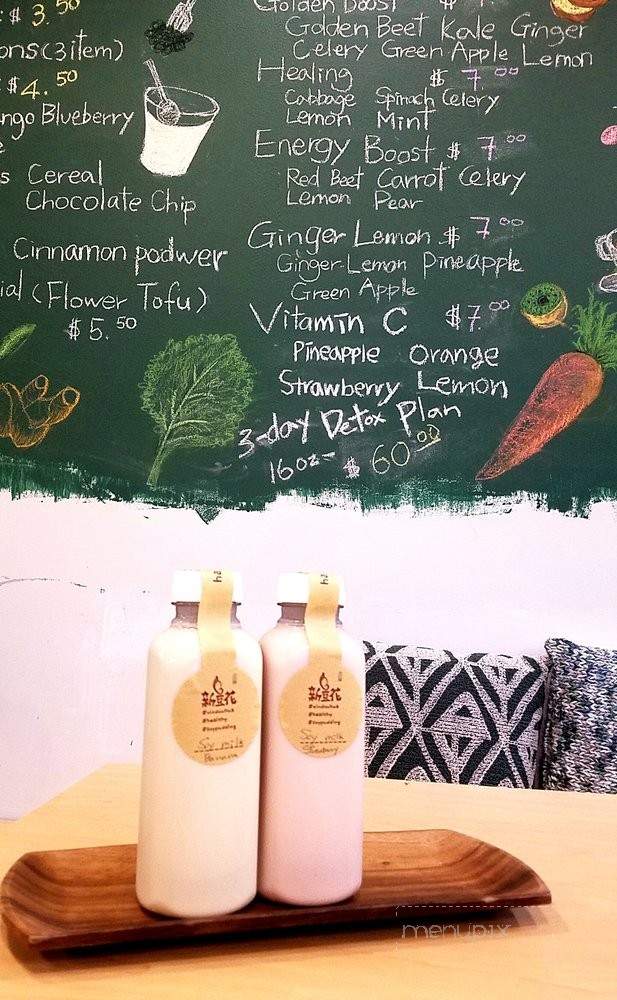 $ 3.50
ons(3item)
$4.50
ngo Blueberry
e
s Cereal
Chocolate Chip
Cinnamon podwer
ial (Flower Tofu)
$5.50
Golden Boost $
Golden Beet Kale Ginger
Celery Green Apple Lemon
Healing $ 7.00
Cabbage Spinach Celery
Lemon Mint
Energy Boost $ 7.00
Red Beet Carrot Celery
Lemon Pear
Ginger Lemon $ 7.00
Ginger-Lemon Pineapple
Green Apple
Vitamin C $7.00
Pineapple Orange
Strawberry Lemon
3-day Detox Plan
16oz- $ 60.00
新豆花
#healthy
Soy milk
Banana
新豆花
#healthy
#soypudding
Soy milk
Strawberry
menupix